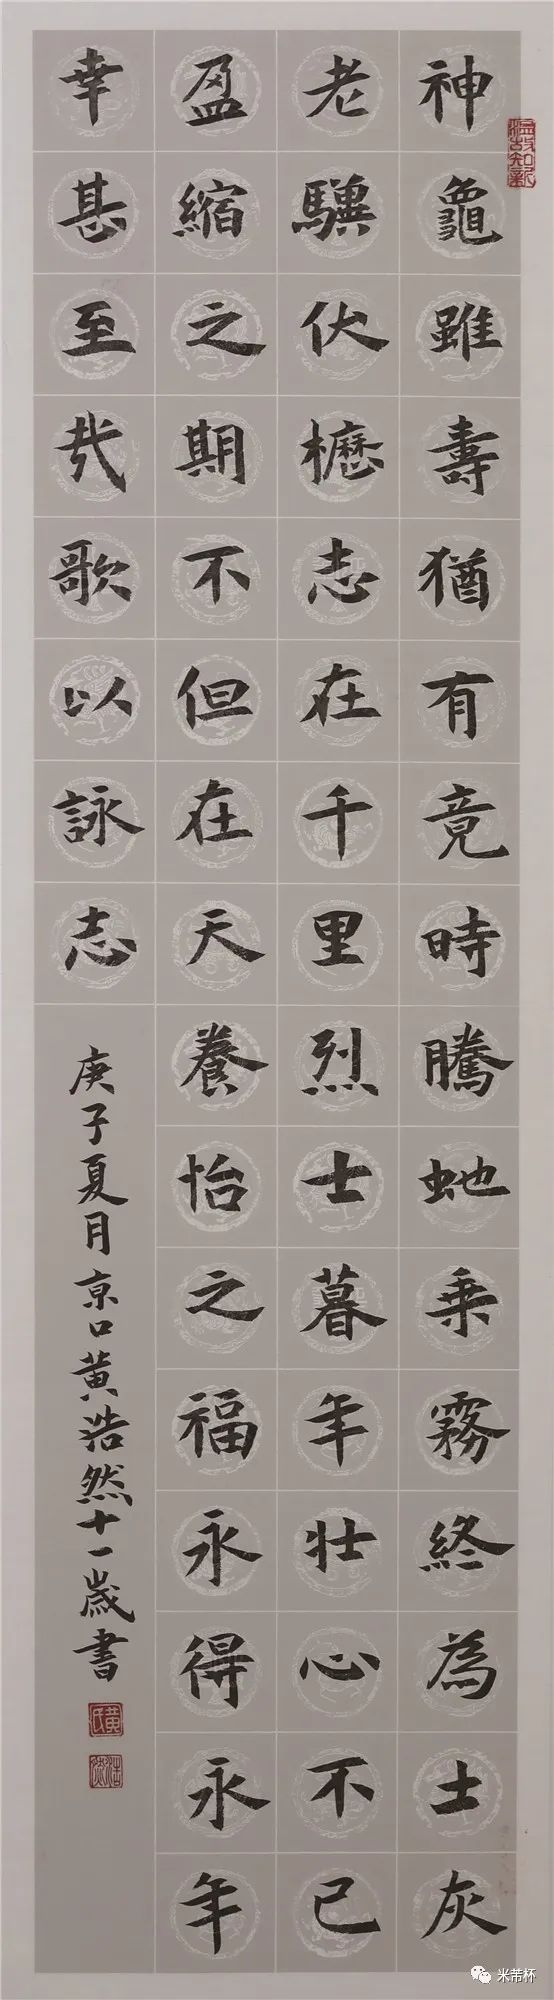 温故知新
神龜雖壽猶有竟時騰虵乘霧終為士灰
老驥伏櫪志在千里烈士暮年壯心不已
盈縮之期不但在天養怡之福永得永年
幸甚至哉歌以詠志
庚子夏月京口黄浩然十一歲書
黄氏
浩然
米芾杯